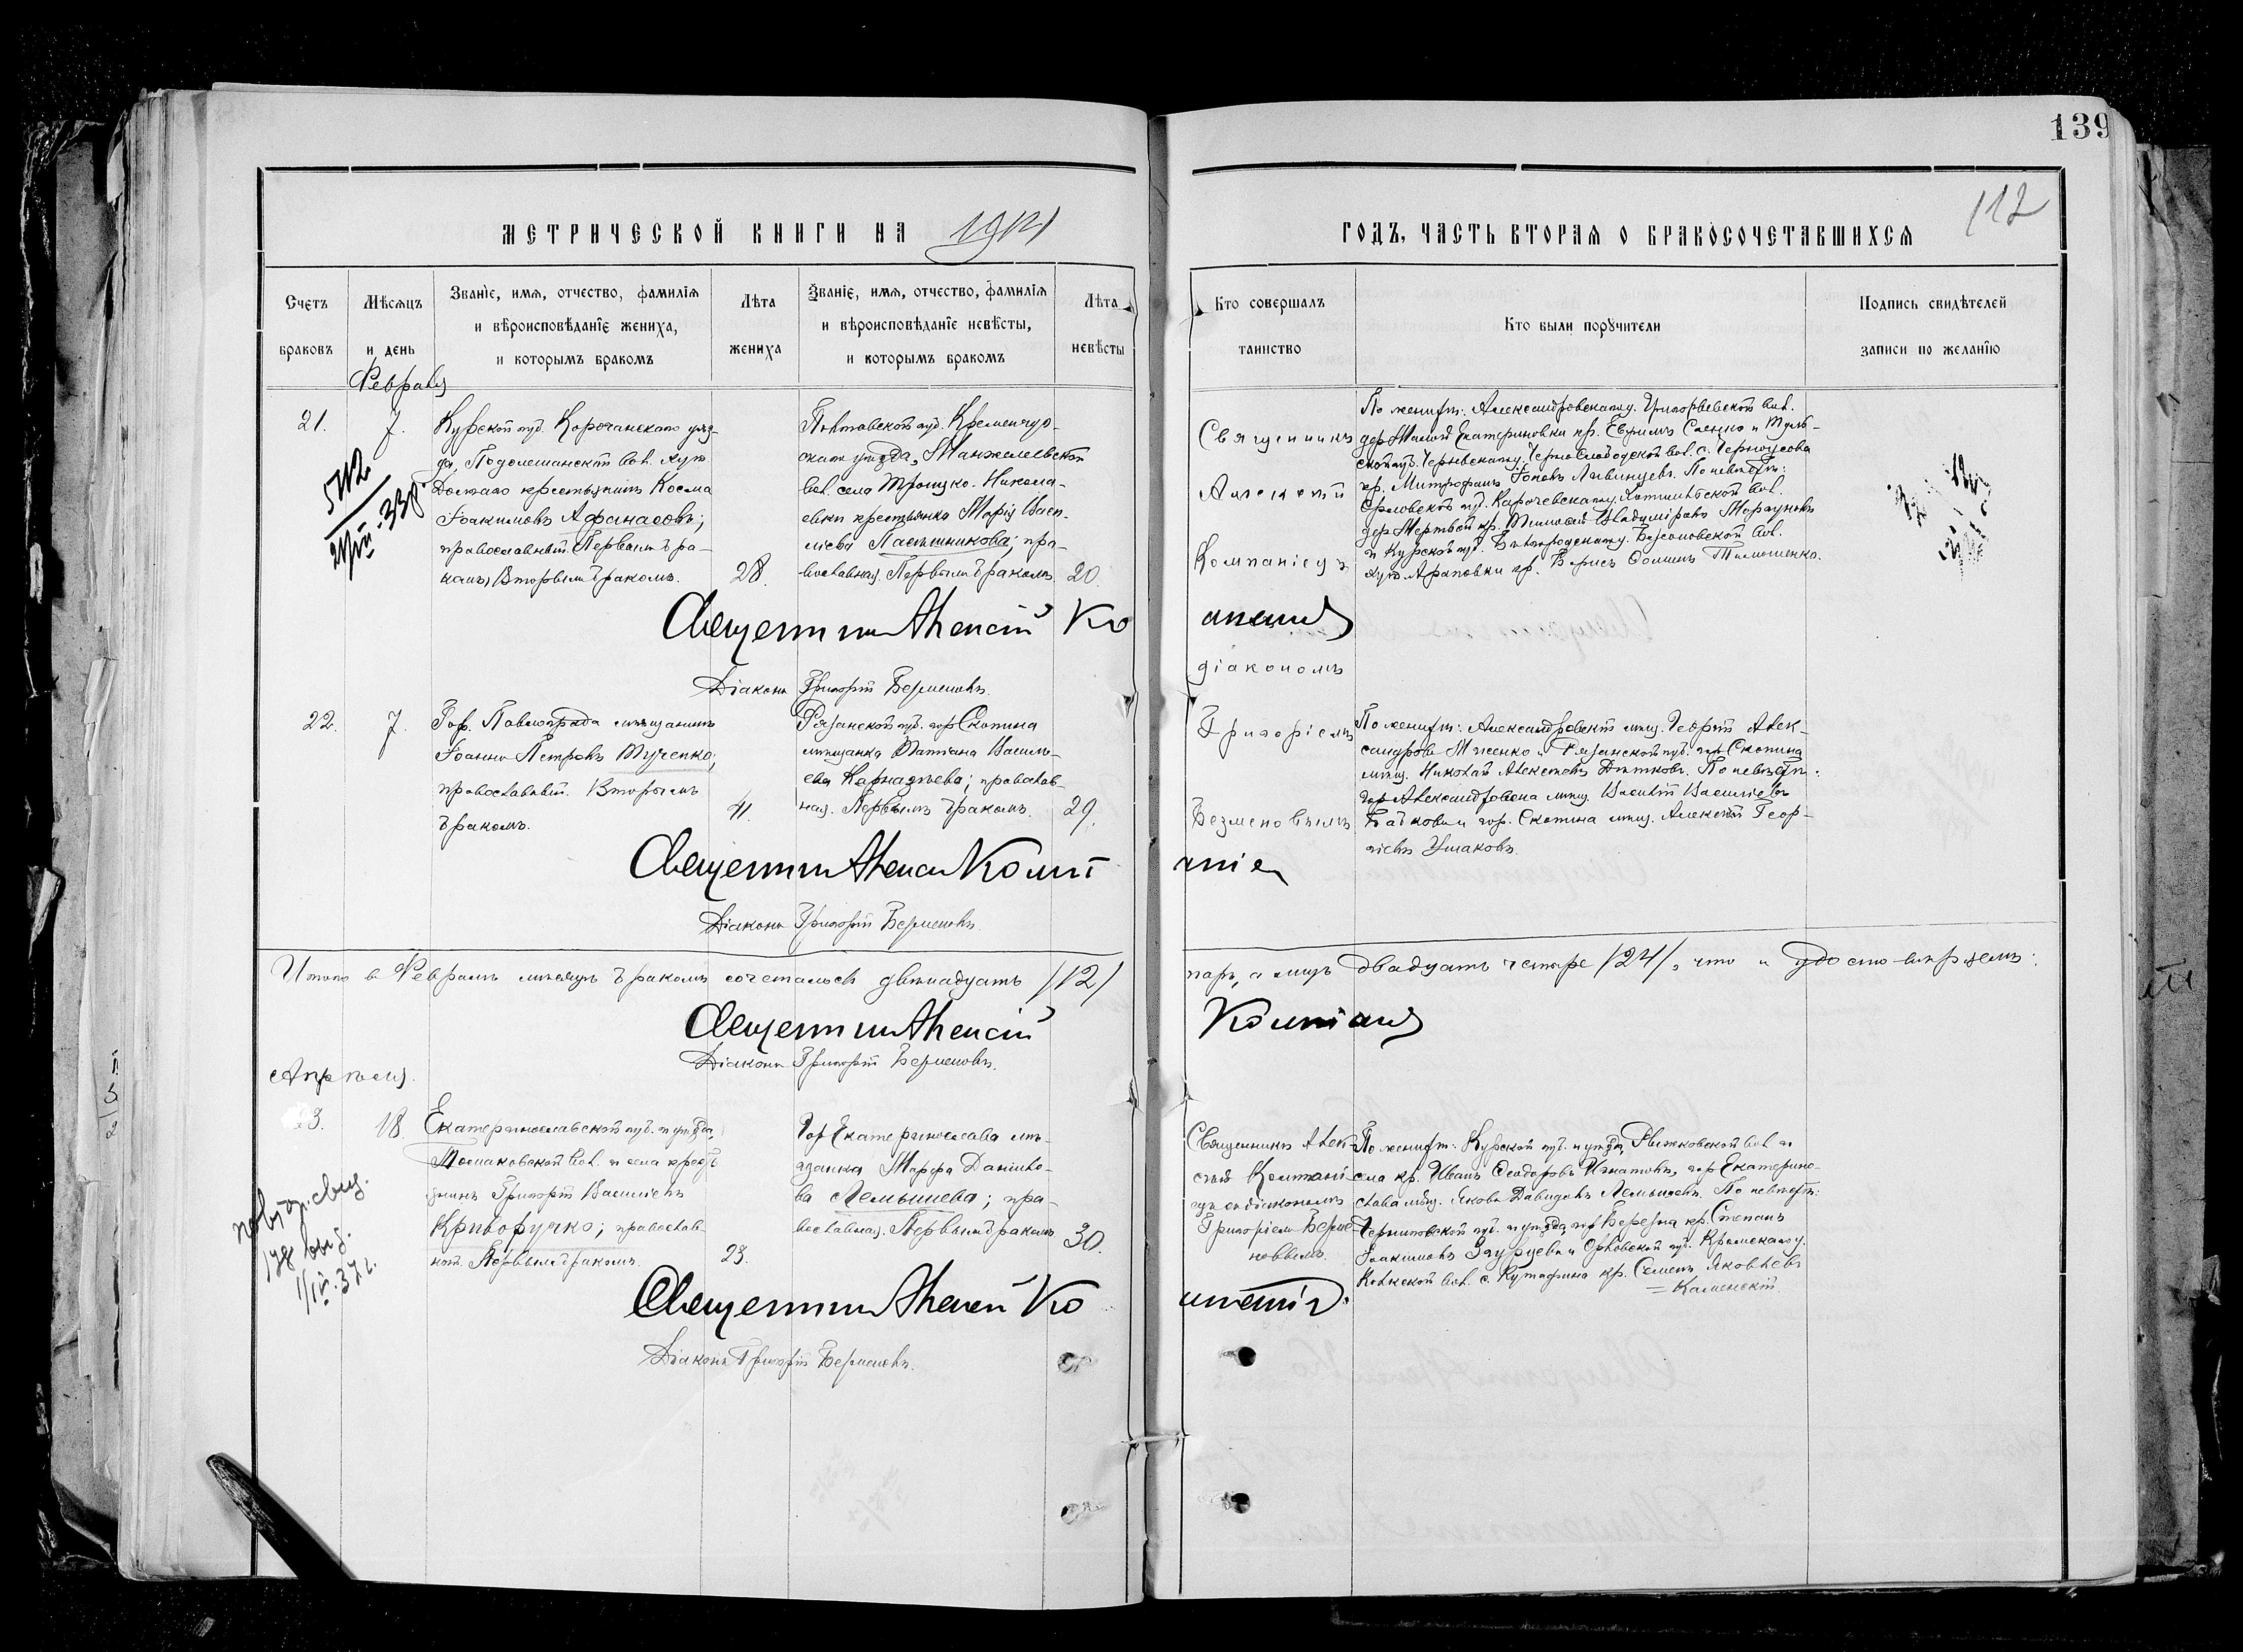 139
112
МЕТРИЧЕСКОЙ КНИГИ НА 1914
ГОДЪ, ЧАСТЬ ВТОРАЯ О БРАКОСОЧЕТАВШИХСЯ
Счетъ браковъ
Мѣсяцъ и день
Званїе, имя, отчество, фамилїя
и вѣроисповѣданїе жениха,
и которымъ бракомъ
Лѣта жениха
Званїе, имя, отчество, фамилїя
и вѣроисповѣданїе невѣсты,
и которымъ бракомъ
Лѣта невѣсты
Кто совершалъ таинство
Кто были порꙋчители
Подпись свидѣтелей
записи по желанїю
Февраля
21.
7.
Курской губ. Корочанскаго уѣз-
да, Подолешанской вол. хут.
крестьянинъ Косма
Іоакимовъ Афанасовъ;
православный. Первымъ бра-
комъ, Вторымъ бракомъ.
28.
Полтавской губ. Кременчуг-
скаго уѣзда, Манжелевской
вол. села Троицко-Никола-
евки крестьянка Марія Васи-
ліева Пасѣшникова; пра-
вославная. Первымъ бракомъ
20.
Священникъ
Алексѣй
Компаніецъ
По женихѣ: Александровскаго у. Григорьевской вол.
дер. Малой Екатериновки кр. Евѳимъ и Туль-
ской губ. Чернскаго у. Чернослободской вол. с. Черноусова
кр. Митрофанъ Іоновъ Ливинцевъ. По невѣстѣ:
Орловской губ. Карачевскаго у. вол.
дер. Мертвой кр. Тимоѳей Владиміровъ Моргуновъ
и Курской губ. Бѣлгородскаго у. вол.
хут. Араповки кр. Борисъ Ѳоминъ Тимошенко.
Священникъ Алексій Компаніецъ
діакономъ
Діаконъ Григорій Безменовъ.
22.
7.
Гор. Павлограда мѣщанинъ
Іоаннъ Петровъ Тученко;
православный. Вторымъ
бракомъ.
41.
Рязанской губ. гор. Скопина
мѣщанка Татіана Василь-
ева Карнадѣева; православ-
ная. Первымъ бракомъ.
29.
Григоріемъ
Безменовымъ
По женихѣ: Александровскій мѣщ. Георгій Алек-
сандровъ и Рязанской губ. гор. Скопина
мѣщ. Николай Алексѣевъ Дѣтковъ. По невѣстѣ:
гор. Александровска мѣщ. Василій Васильевъ
и гор. Скопина мѣщ. Алексѣй Геор-
гіевъ Ушаковъ.
Священникъ Алексій Компаніецъ
Діаконъ Григорій Безменовъ.
Итого въ Февралѣ мѣсяцѣ бракомъ сочеталось двѣнадцать /12/ паръ, а лицъ двадцать четыре /24/, что и удостовѣряемъ:
Священникъ Алексій Компаніецъ
Діаконъ Григорій Безменовъ.
Апрѣля.
23.
18.
Екатеринославской губ. и уѣзда,
Томаковской вол. и села кресть-
янинъ Григорій Васильевъ
Криворучко; православ-
ный. Первымъ бракомъ.
23.
Гор. Екатеринослава мѣ-
щанка Марфа Данило-
ва Лемышева; пра-
вославная. Первымъ бракомъ
30.
Священникъ Алек-
сѣй Компані-
ецъ съ діакономъ
Григоріемъ Безме-
новымъ.
По женихѣ: Курской губ. и уѣзда, Рыжковской вол. и
села кр. Иванъ Ѳеодоровъ Игнатовъ, гор. Екатерино-
слава мѣщ. Яковъ Давидовъ Лемышевъ. По невѣстѣ:
Черниговской губ. и уѣзда, гор. Березна кр. Степанъ
Іоакимовъ и Орловской губ. Кромскаго у.
вол. с. Кутафина кр. Семенъ Яковлевъ
Каменскій.
Священникъ Алексій Компаніецъ
Діаконъ Григорій Безменовъ.